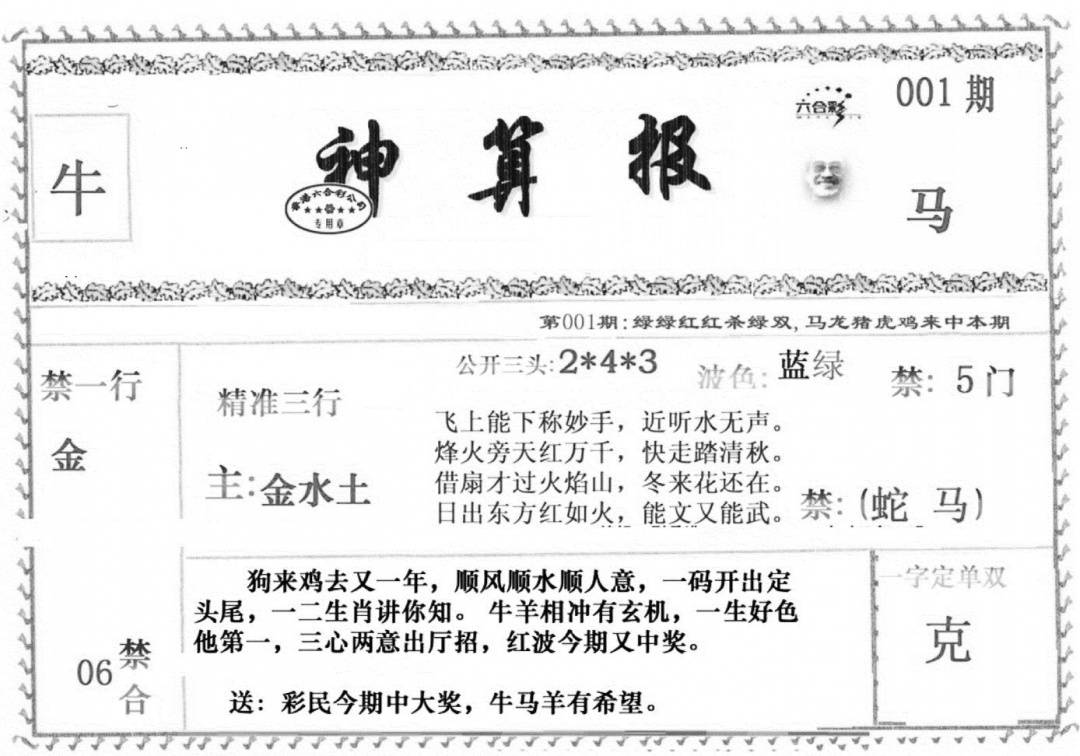 001期
六合彩
牛
神算报
香港六合彩公司
专用章
马
第001期:绿绿红红杀绿双,马龙猪虎鸡来中本期
禁一行
金
精准三行
主:金水土
公开三头:2*4*3
波色:蓝绿
禁:5门
飞上能下称妙手，近听水无声。
烽火旁天红万千，快走踏清秋。
借扇才过火焰山，冬来花还在。
日出东方红如火，能文又能武。
禁:(蛇 马)
06禁合
狗来鸡去又一年，顺风顺水顺人意，一码开出定
头尾，一二生肖讲你知。 牛羊相冲有玄机，一生好色
他第一，三心两意出厅招，红波今期又中奖。
送：彩民今期中大奖，牛马羊有希望。
一字定单双
克